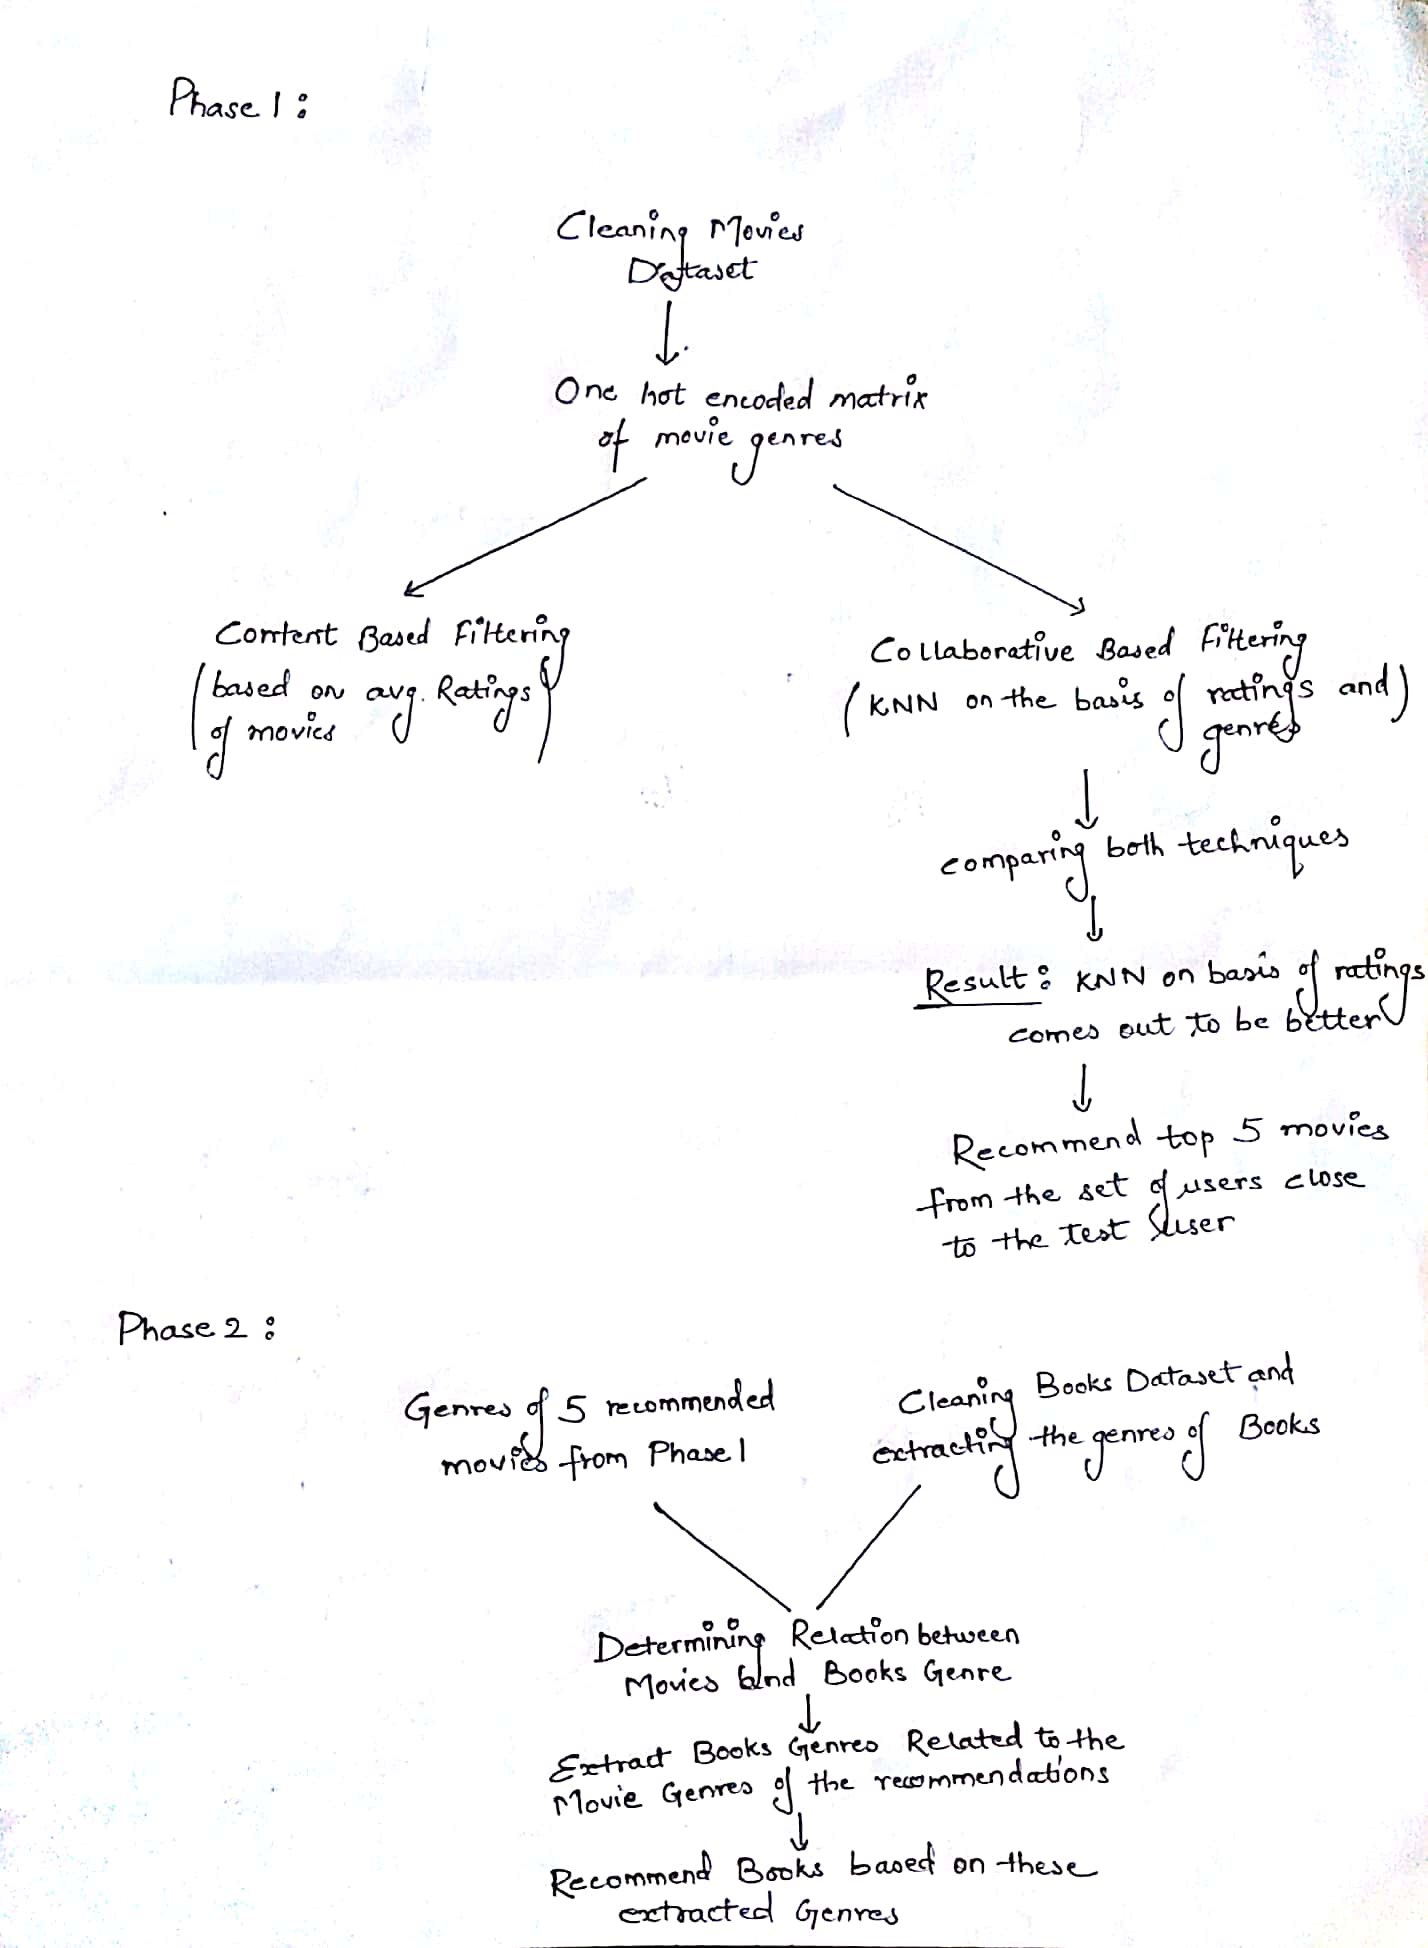 Phase 1 :
Cleaning Movies
Dataset
One hot encoded matrix
of movie genres
Content Based Filtering
(based on avg. Ratings
of movies)
Collaborative Based Filtering
(KNN on the basis of ratings and)
genres
comparing both techniques
Result : KNN on basis of ratings
comes out to be better
Recommend top 5 movies
from the set of users close
to the test user
Phase 2 :
Genres of 5 recommended
movies from Phase 1
Cleaning Books Dataset and
extracting the genres of Books
Determining Relation between
Movies and Books Genre
Extract Books Genres Related to the
Movie Genres of the recommendations
Recommend Books based on these
extracted Genres